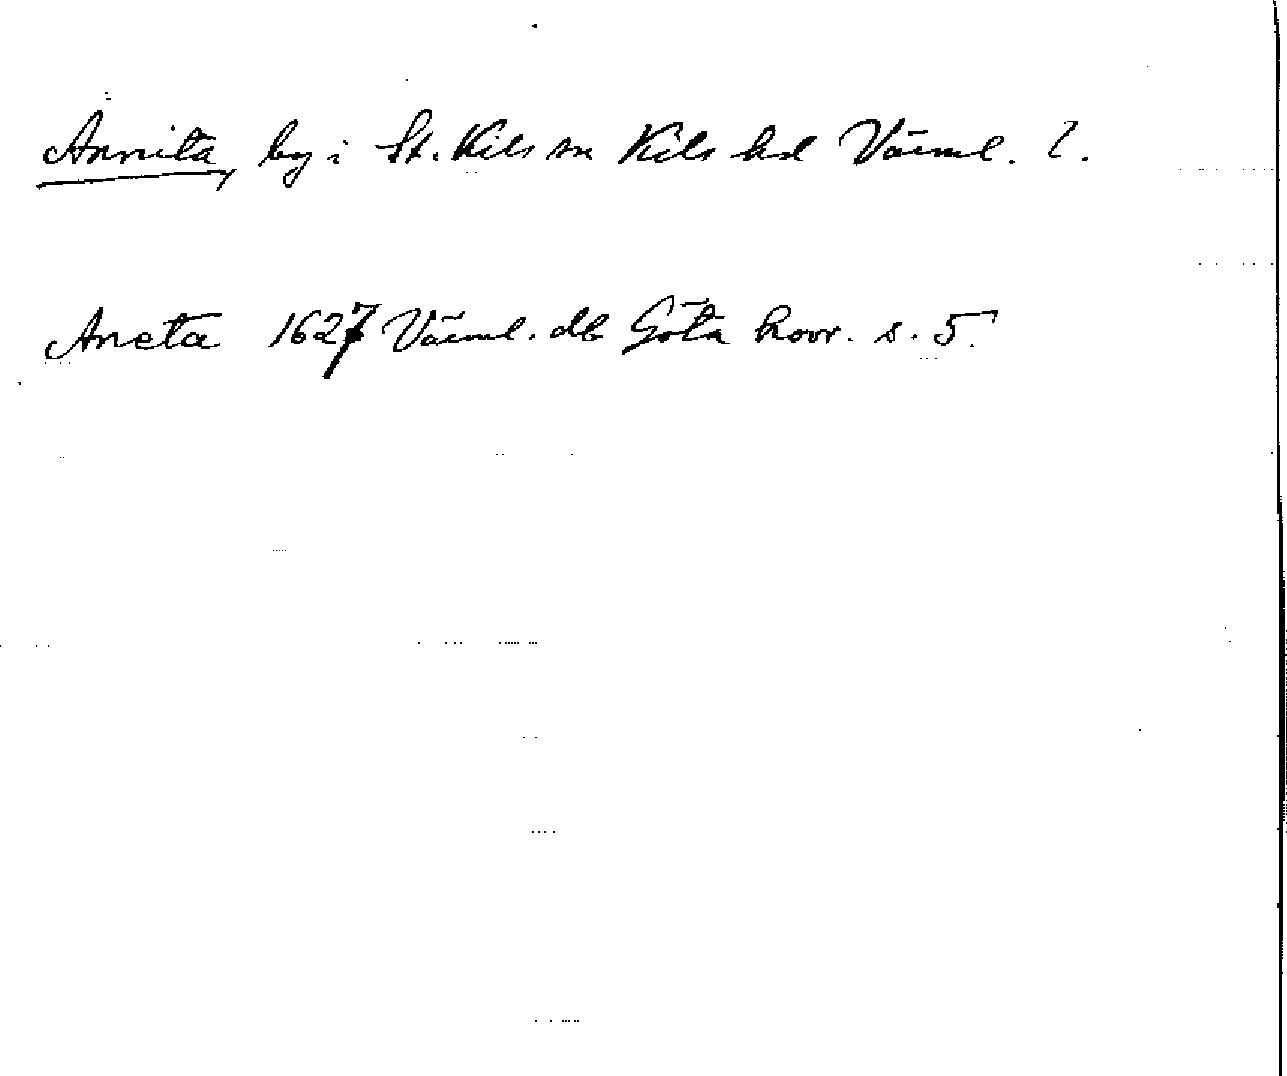 Annita, by i St. Kils sn Kils hd Värml. l.
Aneta 1627 Värml. db Göta hovr. s. 5.